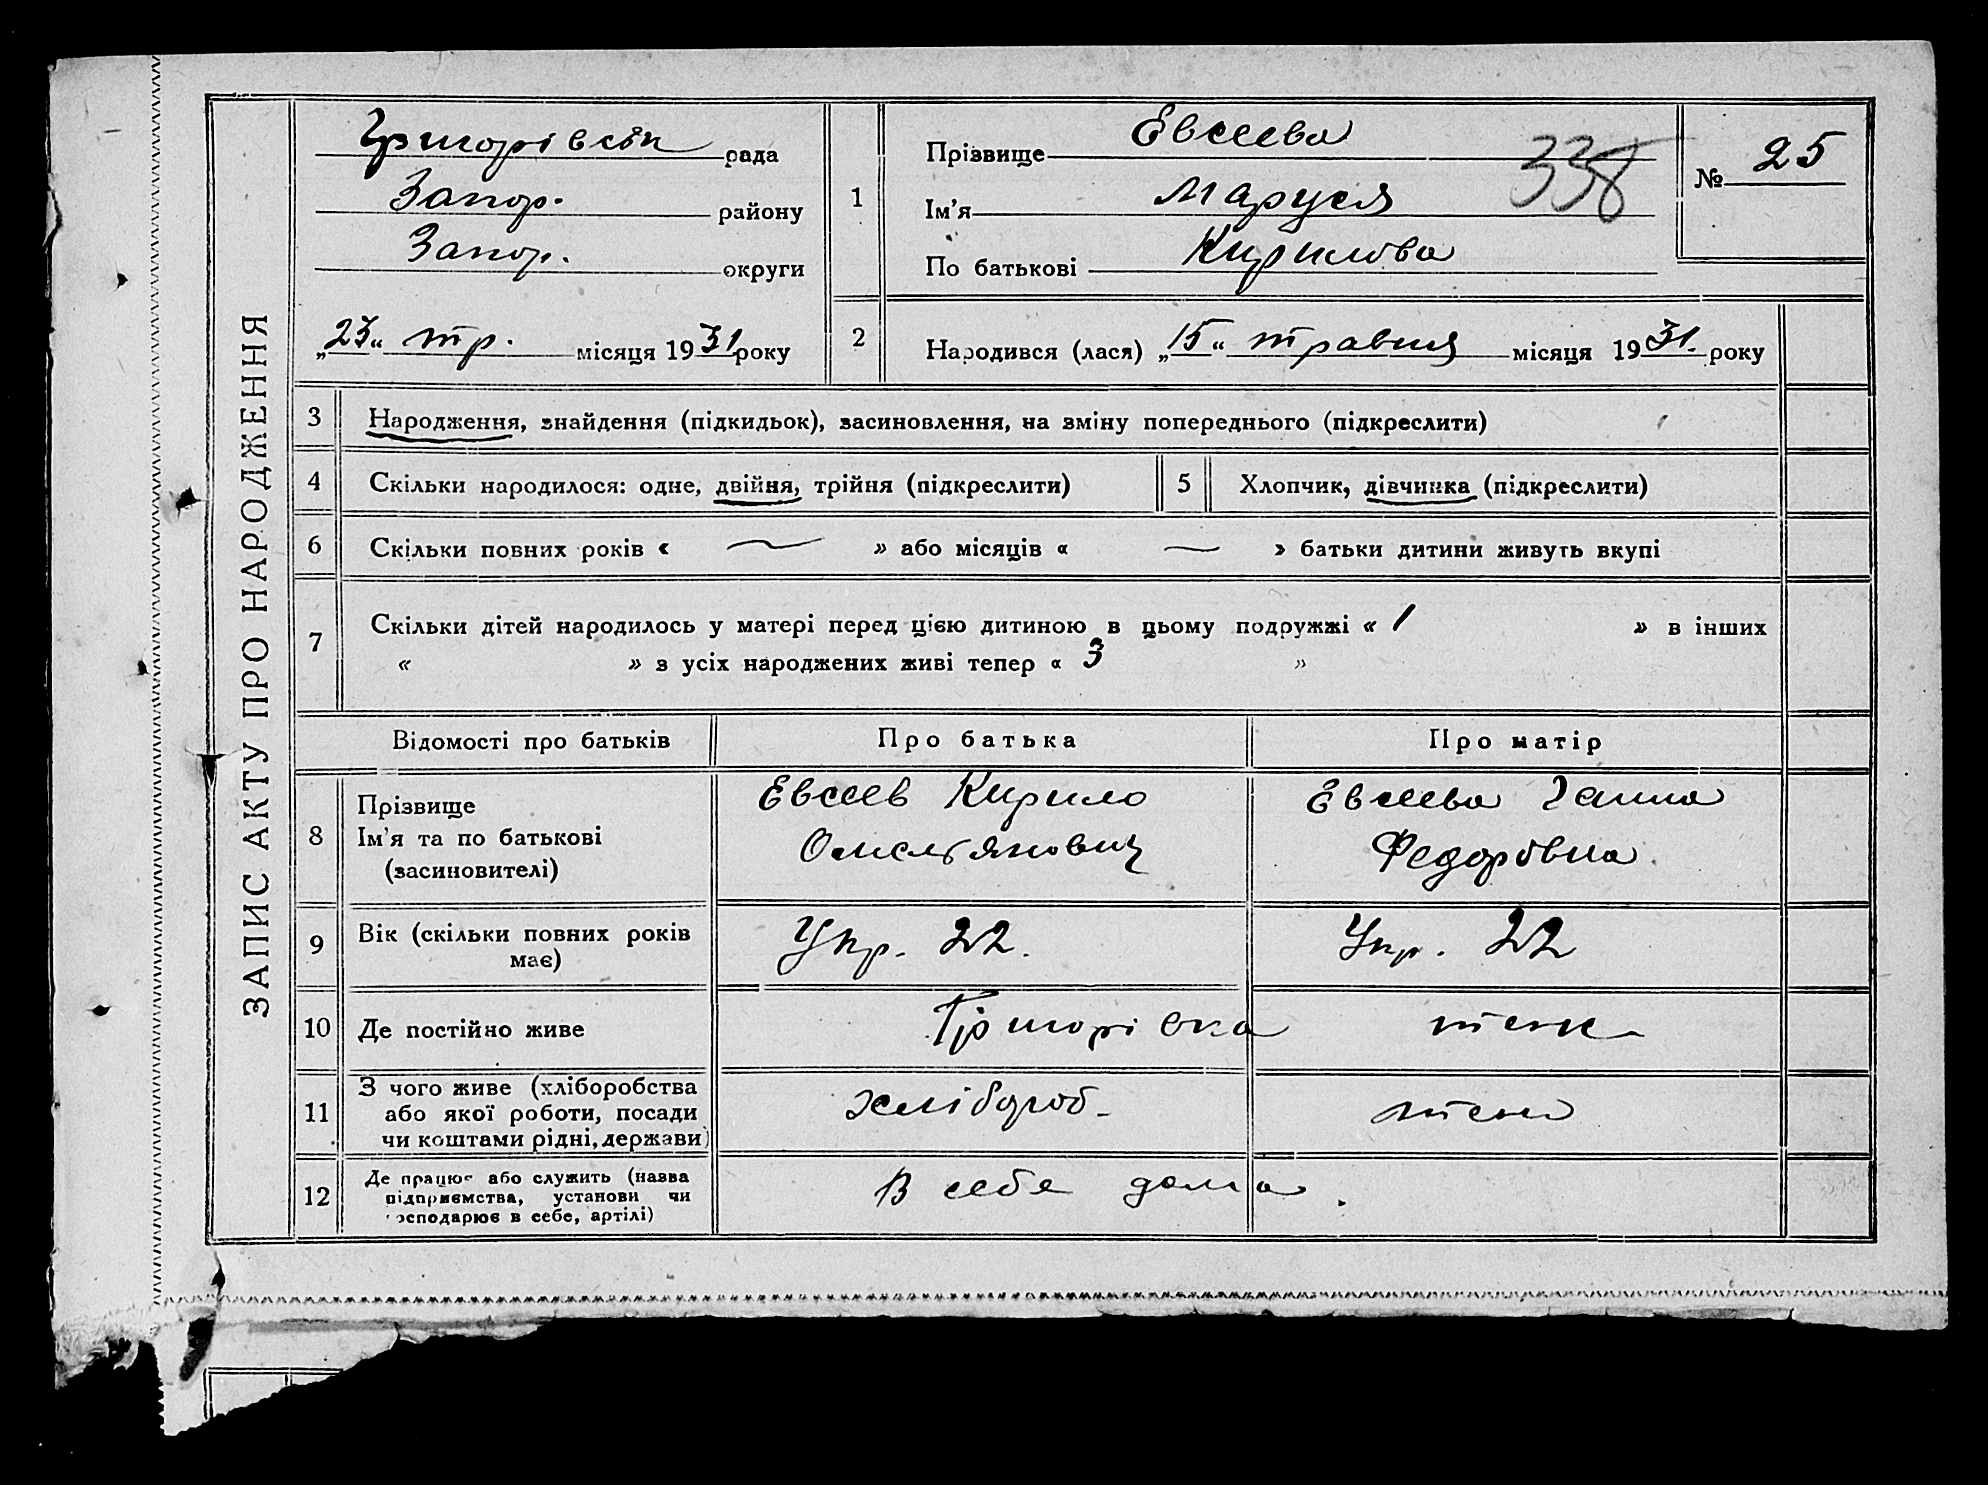 ЗАПИС АКТУ ПРО НАРОДЖЕННЯ
Григорівськ рада
Запор. району
Запор. округи
„23“ тр. місяця 1931 року
1 Прізвище Евсеева
Ім'я Маруся
По батькові Кирилова
338
№ 25
2 Народився (лася) „15“ травня місяця 1931. року
3 Народження, знайдення (підкидьок), засиновлення, на зміну попереднього (підкреслити)
4 Скільки народилося: одне, двійня, трійня (підкреслити)
5 Хлопчик, дівчинка (підкреслити)
6 Скільки повних років « — » або місяців « — » батьки дитини живуть вкупі
7 Скільки дітей народилось у матері перед цією дитиною в цьому подружжі « 1 » в інших
« » з усіх народжених живі тепер « 3 »
Відомості про батьків Про батька Про матір
8 Прізвище
Ім'я та по батькові
(засиновителі)
Евсеев Кирило
Омельянович
Евсеева Ганна
Федоровна
9 Вік (скільки повних років
має)
Укр. 22.
Укр. 22
10 Де постійно живе
Григорівка
теж
11 З чого живе (хліборобства
або якої роботи, посади
чи коштами рідні, держави)
хлібороб-
теж
12 Де працює або служить (назва
підприємства, установи чи
господарює в себе, артілі)
В себе дома.